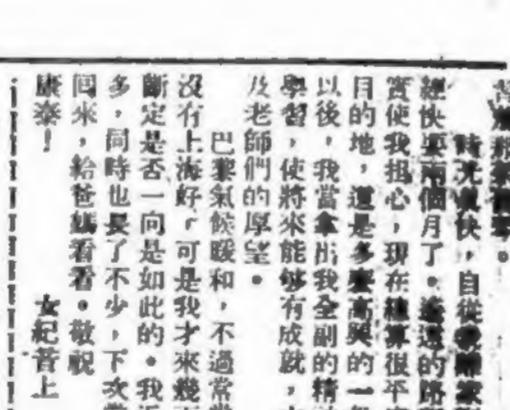 時光真快，自從
經快要兩個月了。遙遠的路
實使我担心，現在總算很平
目的地，這是多麼高興的一
以後，我當拿出我全副的精
學習，使將來能够有成就，
及老師們的厚望。
巴黎氣候暖和，不過常常
沒有上海好，可是我才來幾
斷定是否一向是如此的。我近
多，同時也長了不少，下次
回來，給爸媽看看。敬祝
康泰！
女紀昔上